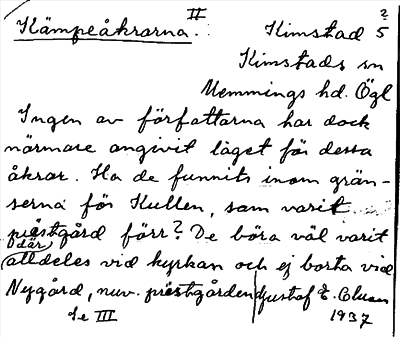 II
Kämpeåkrarna. Kimstad ? 5
Kimstads sn
Memmings hd. Ögl
Ingen av författarna har dock
närmare angivit läget för dessa
åkrar. Ha de funnits inom grän-
serna för Kullen, som varit
prästgård förr? De böra väl varit
där
alldeles vid kyrkan och ej borta vid
Nygård, nuv. prästgården Gustaf E.
Se III 1937